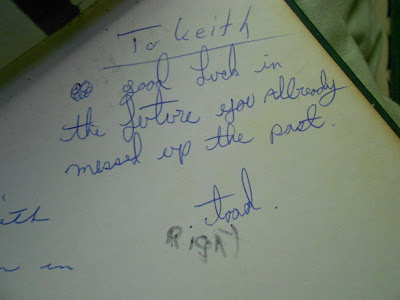 To Keith
good luck in
the future you allready
messed up the past.
toad.
Right
eith
in